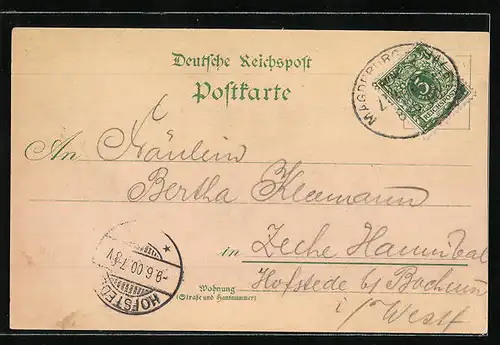 Deutsche Reichspost
Postkarte
MAGDEBURG
5
An Fräulein
Bertha Kleemann
in Zeche Hannibal
Hofstede b/ Bochum
i/ Westf
Wohnung
(Straße und Hausnummer)
HOFSTEDE
-9.6.00.7-8V